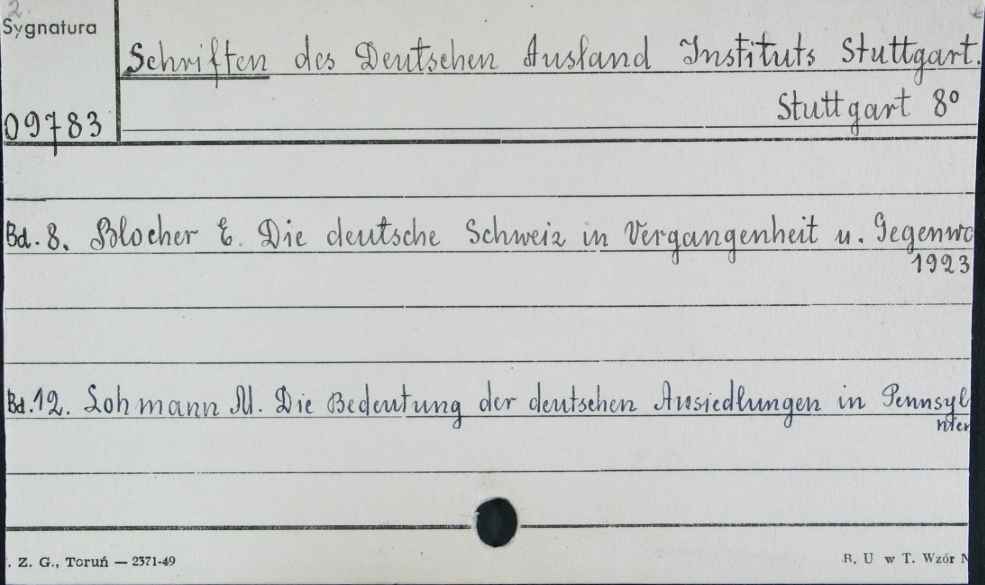 2.
Sygnatura
Schriften des Deutschen Ausland Instituts Stuttgart.
Stuttgart 8º
09783
Bd. 8. Blocher E. Die deutsche Schweiz in Vergangenheit u. Gegenwa
1923
Bd. 12. Lohmann M. Die Bedeutung der deutschen Ansiedlungen in Pennsyl
nien
. Z. G., Toruń — 2371-49
R. U w T. Wzór N